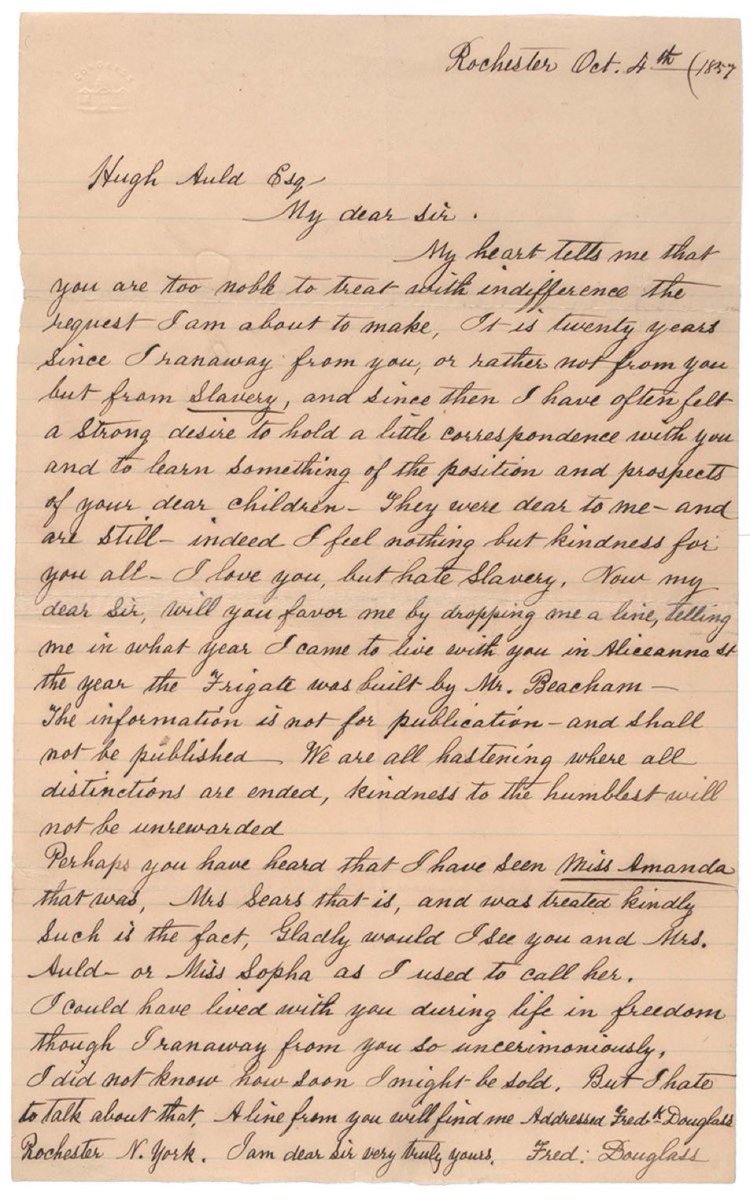 Rochester Oct. 4th (1857
Hugh Auld Esq
My dear sir.
My heart tells me that
you are too noble to treat with indifference the
request I am about to make, It is twenty years
since I ranaway from you, or rather not from you
but from Slavery, and since then I have often felt
a strong desire to hold a little correspondence with you
and to learn something of the position and prospects
of your dear children - They were dear to me - and
are still - indeed I feel nothing but kindness for
you all - I love you, but hate Slavery. Now my
dear Sir, will you favor me by dropping me a line, telling
me in what year I came to live with you in Aliceanna st
the year the Frigate was built by Mr. Beacham -
The information is not for publication - and shall
not be published - We are all hastening where all
distinctions are ended, kindness to the humblest will
not be unrewarded
Perhaps you have heard that I have seen Miss Amanda
that was, Mrs Sears that is, and was treated kindly
Such is the fact, Gladly would I see you and Mrs.
Auld - or Miss Sopha as I used to call her.
I could have lived with you during life in freedom
though I ranaway from you so uncerimoniously,
I did not know how soon I might be sold. But I hate
to talk about that. A line from you will find me Addressed Fredk Douglass
Rochester N. York. I am dear sir very truly yours. Fred: Douglass